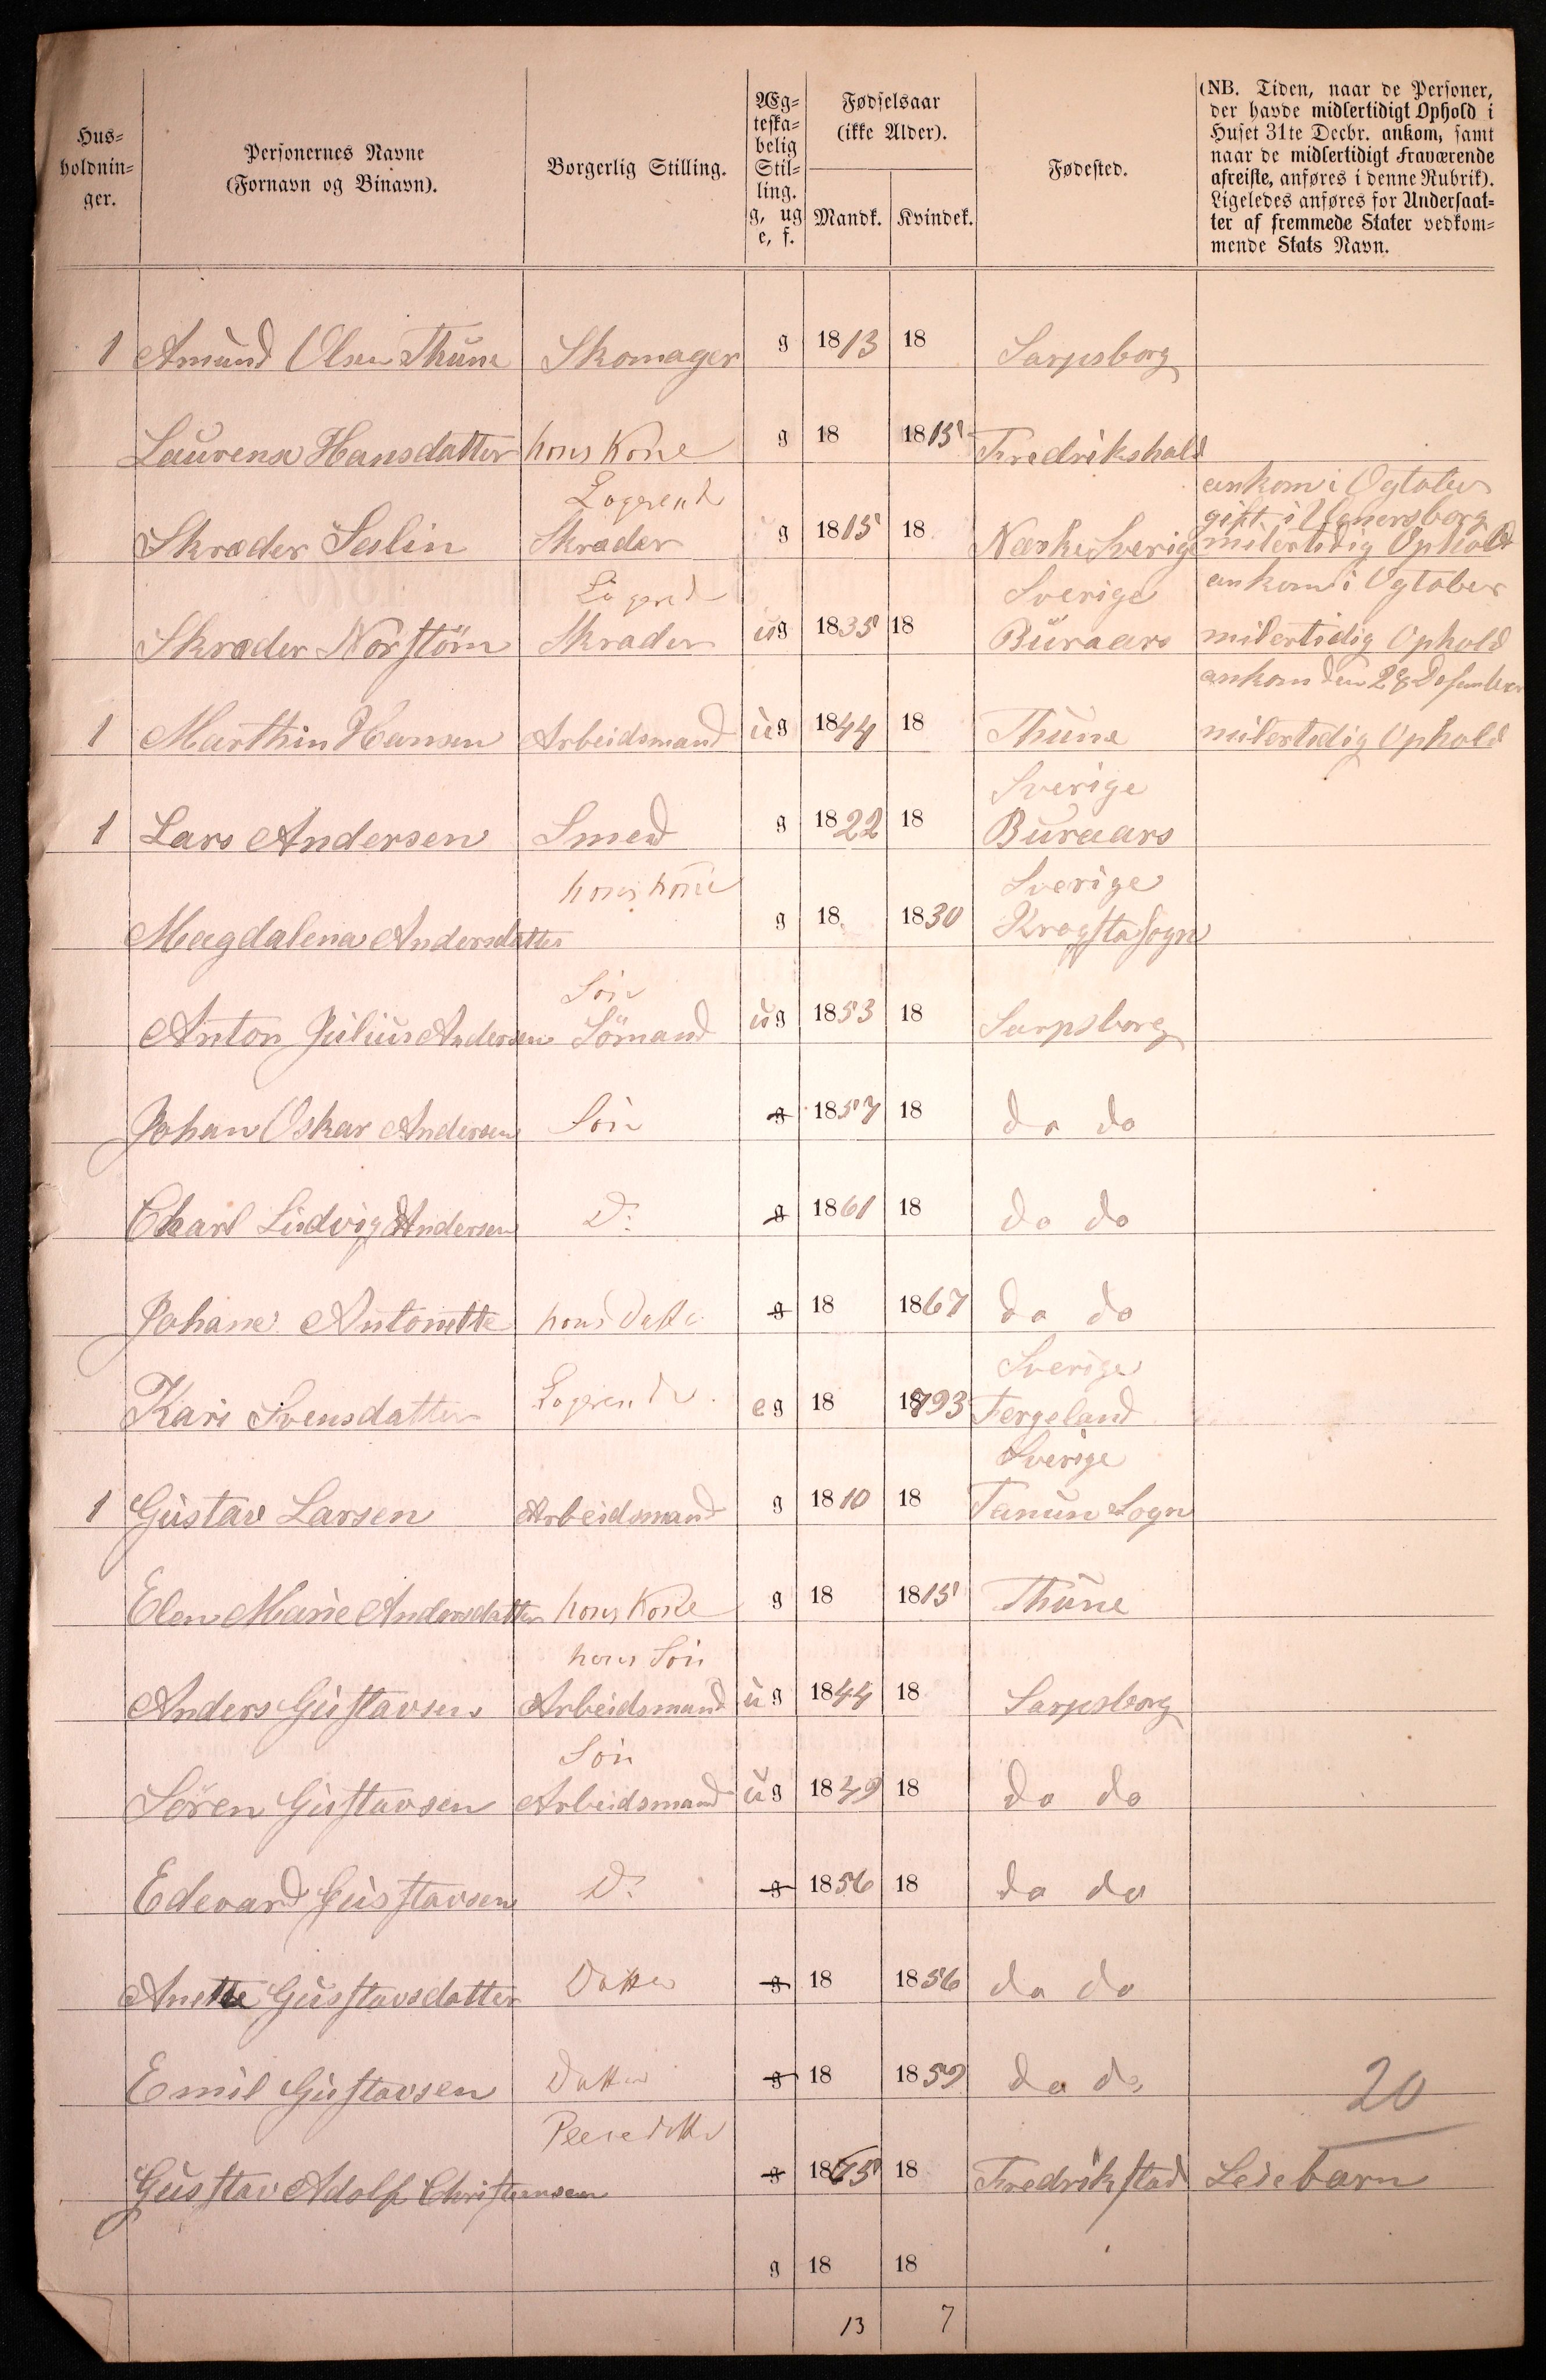 Hus-
holdnin-
ger.
Personernes Navne
(Fornavn og Binavn).
Borgerlig Stilling.
Æg-
teska-
belig
Stil-
ling.
g, ug
e, f.
Fødselsaar
(ikke Alder).
Mandk. Kvindek.
Fødested.
(NB. Tiden, naar de Personer,
der havde midlertidigt Ophold i
Huset 31te Decbr. ankom, samt
naar de midlertidigt Fraværende
afreiste, anføres i denne Rubrik).
Ligeledes anføres for Undersaat-
ter af fremmede Stater vedkom-
mende Stats Navn.
1 Amund Olsen Thune Skomager g 1813 18 Sarpsborg
Laurense Hansdatter hans Kone g 18 1815 Fredrikshald
Logerende ankom i Ogtober
gift i Venersborg
Skræder Salin Skræder g 1815 18 Nærke Sverige milertidig Ophold
Logerende Sverige ankom i Ogtober
Skræder Norström Skræder ug 1835 18 Buraars milertidig Ophold
ankom den 28 Desember
1 Marthin Hansen Arbeidsmand ug 1844 18 Thune milertidig Ophold
Sverige
1 Lars Andersen Smed g 1822 18 Buraars
hans kone Sverige
Magdalena Andersdatter g 18 1830 Krogsta sogn
Søn
Anton Julius Andersen Sömand ug 1853 18 Sarpsborg
Johan Oskar Andersen Søn g 1857 18 do do
Charl Ludvig Andersen Do g 1861 18 do do
Johane Antonette hans Datter g 18 1867 do do
Sverige
Kari Svensdatter Logerende eg 18 1793 Fergeland
Sverige
1 Gustav Larsen Arbeidsmand g 1810 18 Tanun Sogn
Elen Marie Andersdatter hans Kone g 18 1815 Thune
hans Søn
Anders Gustavsen Arbeidsmand ug 1844 18 Sarpsborg
Søn
Sören Gustavsen Arbeidsmand ug 1849 18 do do
Edevard Gustavsen Do g 1856 18 do do
Anette Gustavsdatter Datter g 18 1856 do do
Emil Gustavsen Datter g 18 1859 do do
20
Gustav Adolf Christensen g 1865 18 Fredrikstad Leiebarn
g 18 18
13 7